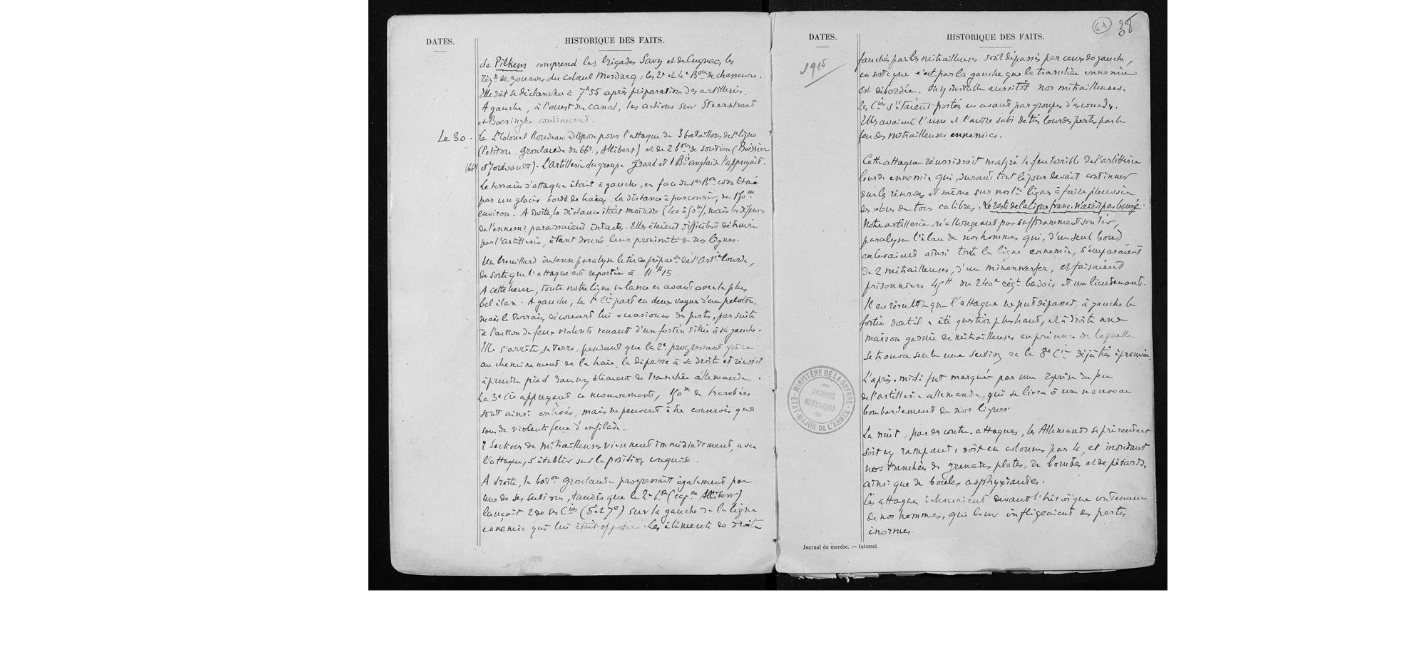 DATES.
HISTORIQUE DES FAITS.
de Pilkem comprend les brigades Savy et de Cugnac, les
rég.ts de zouaves du colonel Mordacq, les 2e et 4e B.ons de chasseurs.
Elle doit se déclancher à 7h55 après préparation des artilleries.
A gauche, à l'ouest du canal, les actions sur Steenstraat
et Boesinghe continueront.
Le 30 -
le Lt Colonel Rondeau dispose pour l'attaque de 3 bataillons de 1e ligne
(Petitou, Gronlard du 66e, Alibert) et de 2 b.ons de soutien (Boissieu
L'Artillerie du groupe Girard et 1 Bie anglaise l'appuyait.
Le terrain d'attaque était à gauche, en face du 1er B.on constitué
par un glacis bordé de haies, la distance à parcourir, de 150m
environ. A droite, la distance était moindre mais les défenses
de l'ennemi paraissaient intactes. Elles étaient difficiles à détruire
par l'artillerie, étant donné leur proximité de nos lignes.
Un brouillard intense paralyse le tir de prépar.on de l'Art.ie lourde,
de sorte que l'attaque est reportée à 11h15
A cette heure, toute notre ligne se lance en avant avec le plus
bel élan. A gauche, la 1e Cie part en deux vagues d'un peloton,
mais le terrain découvert lui occasionne des pertes, par suite
de l'action de feux violents venant d'un fortin situé à sa gauche.
Elle s'arrête, se terre, pendant que la 2e progressant grâce
au cheminement de la haie, la dépasse à sa droite et réussit
à prendre pied dans un élément de tranchée allemande.
La 3e Cie appuyant ce mouvement, 150m de tranchées
sont ainsi enlevés, mais ne peuvent être conservés que
sous de violents feux d'enfilade.
2 sections de mitrailleuses viennent immédiatement, avec
l'attaque, s'établir sur la position conquise.
A droite, le b.on Gronlard progressait également par
une de ses sections, tandis que le 2e b.on (cap.ne Alibert)
lançait 2 de ses Cies (5e et 7e) sur la gauche de la ligne
ennemie qui lui était opposée. Les éléments de droite
DATES.
HISTORIQUE DES FAITS.
61
38
1915
fauchés par les mitrailleuses sont dépassés par ceux de gauche,
en sorte que c'est par la gauche que la tranchée ennemie
est abordée. On y installe aussitôt nos mitrailleuses.
Les Cies s'étaient portés en avant par groupes d'escouade.
Elles avaient l'une et l'autre subi de très lourdes pertes par le
feu des mitrailleuses ennemies.
Cette attaque réussissait malgré le feu terrible de l'artillerie
lourde ennemie qui, durant tout le jour devait continuer
sur les réserves et même sur notre ligne à faire pleuvoir
des obus de tous calibres. Le reste de la ligne française n'avait pas bougé.
Notre artillerie, n'allongeant pas suffisamment son tir,
paralysa l'élan de nos hommes qui, d'un seul bond
enlevaient ainsi toute la ligne ennemie, s'emparaient
de 2 mitrailleuses, d'un minenwerfer, et faisaient
prisonniers 45 h.es du 240e rég.t badois et un lieutenant.
Il en résulte que l'attaque ne put dépasser, à gauche le
fortin dont il a été question plus haut, et à droite une
maison garnie de mitrailleuses en présence de laquelle
se trouva seule une section de la 8e Cie déjà très éprouvée.
L'après-midi fut marquée par une reprise du feu
de l'artillerie allemande, qui se livra à un nouveau
bombardement de nos lignes.
La nuit, par des contre-attaques, les Allemands se présentent
soit en rampant, soit en colonnes par 4, et inondent
nos tranchées de grenades plates, de bombes et de pétards,
ainsi que de boules asphyxiantes.
Ces attaques échouèrent devant l'héroïque contenance
de nos hommes, qui leur infligeaient des pertes
énormes.
MINISTÈRE DE LA GUERRE
ÉTAT-MAJOR DE L'ARMÉE
ARCHIVES
HISTORIQUES
Journal de marche. — Intérieur.